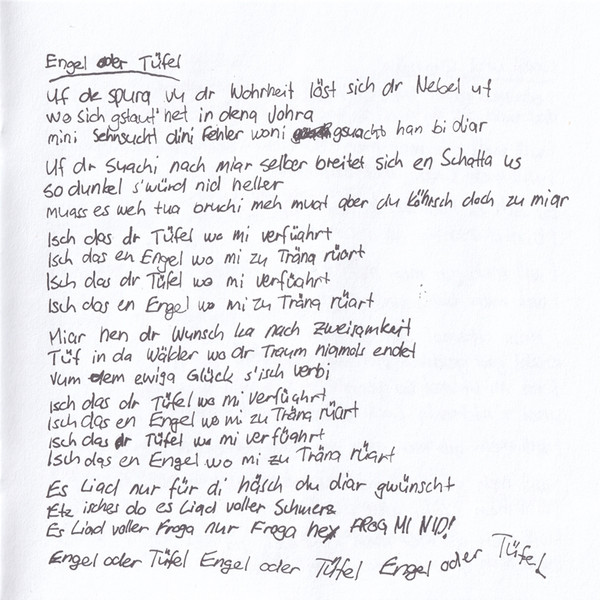 Engel oder Tüfel
Uf de spura vu dr Wohrheit löst sich dr Nebel uf
wo sich gstaut het in dena Johra
mini Sehnsucht dini Fehler woni gsuacht han bi diar
Uf dr Suachi noch miar selber breitet sich en Schatta us
so dunkel s'würd nid heller
muass es weh tua bruchi meh muat aber du köhrsch doch zu miar
Isch das dr Tüfel wo mi verfüahrt
Isch das en Engel wo mi zu Träna rüart
Isch das dr Tüfel wo mi verfüahrt
Isch das en Engel wo mi zu Träna rüart
Miar hen dr Wunsch ka nach zweisamkeit
Tüf in da Wälder wo dr Traum niamols endet
Vum dem ewiga Glück s'isch verbi
Isch das dr Tüfel wo mi verfüahrt
Isch das en Engel wo mi zu Träna rüart
Isch das dr Tüfel wo mi verfüahrt
Isch das en Engel wo mi zu Träna rüart
Es Liad nur für di häsch du diar gwünscht
Etz isches do es Liad voller Schmerz
Es Liad voller Froga nur Froga hey FROG MI NID!
Engel oder Tüfel Engel oder Tüfel Engel oder Tüfel